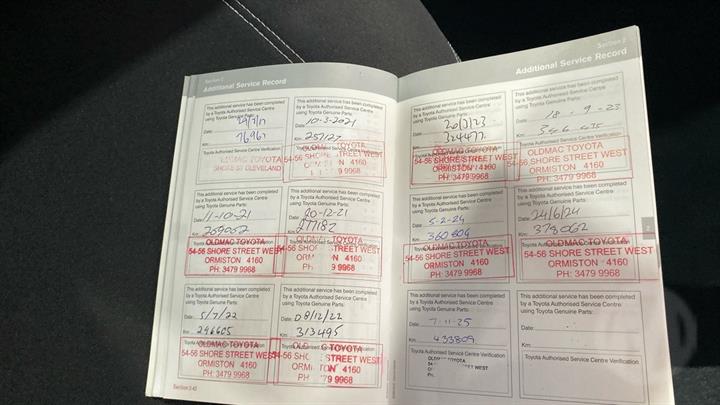 Section 2
Additional Service Record
This additional service has been completed
by a Toyota Authorised Service Centre
using Toyota Genuine Parts:
Date:
Km:
7696
Toyota Authorised Service Centre Verification
OLDMAC TOYOTA
SHORE ST CLEVELAND
This additional service has been completed
by a Toyota Authorised Service Centre
using Toyota Genuine Parts:
Date: 10-3-2021
Km: 257127
Toyota Authorised Service Centre Verification
54-56 SHORE STREET WEST
4160
9968
This additional service has been completed
by a Toyota Authorised Service Centre
using Toyota Genuine Parts:
Date: 11-10-21
Km: 269052
Toyota Authorised Service Centre Verification
OLDMAC TOYOTA
54-56 SHORE STREET WEST
ORMISTON 4160
PH: 3479 9968
This additional service has been completed
by a Toyota Authorised Service Centre
using Toyota Genuine Parts:
Date: 20-12-21
Km: 277182
TOYOTA
STREET WEST
4160
9968
This additional service has been completed
by a Toyota Authorised Service Centre
using Toyota Genuine Parts:
Date: 5/7/22
Km: 296605
OLDMAC TOYOTA
54-56 SHORE STREET WEST
ORMISTON 4160
PH: 3479 9968
This additional service has been completed
by a Toyota Authorised Service Centre
using Toyota Genuine Parts:
Date: 08/12/22
Km: 313495
TOYOTA
STREET WEST
4160
9968
Section 2
Additional Service Record
This additional service has been completed
by a Toyota Authorised Service Centre
using Toyota Genuine Parts:
Date:
Km: 324477
OLDMAC TOYOTA
54-56 SHORE STREET WEST
ORMISTON 4160
PH: 3479 9968
This additional service has been completed
by a Toyota Authorised Service Centre
using Toyota Genuine Parts:
Date: 18-9-23
Km:
OLDMAC TOYOTA
54-56 SHORE STREET WEST
ORMISTON 4160
PH: 3479 9968
This additional service has been completed
by a Toyota Authorised Service Centre
using Toyota Genuine Parts:
Date: 5-2-24
Km: 360804
OLDMAC TOYOTA
54-56 SHORE STREET WEST
ORMISTON 4160
PH: 3479 9968
This additional service has been completed
by a Toyota Authorised Service Centre
using Toyota Genuine Parts:
Date: 24/6/24
Km: 378062
OLDMAC TOYOTA
54-56 SHORE STREET WEST
ORMISTON 4160
PH: 3479 9968
This additional service has been completed
by a Toyota Authorised Service Centre
using Toyota Genuine Parts:
Date: 7-11-25
Km: 433809
Toyota Authorised Service Centre Verification
This additional service has been completed
by a Toyota Authorised Service Centre
using Toyota Genuine Parts:
Date:
Km:
Toyota Authorised Service Centre Verification